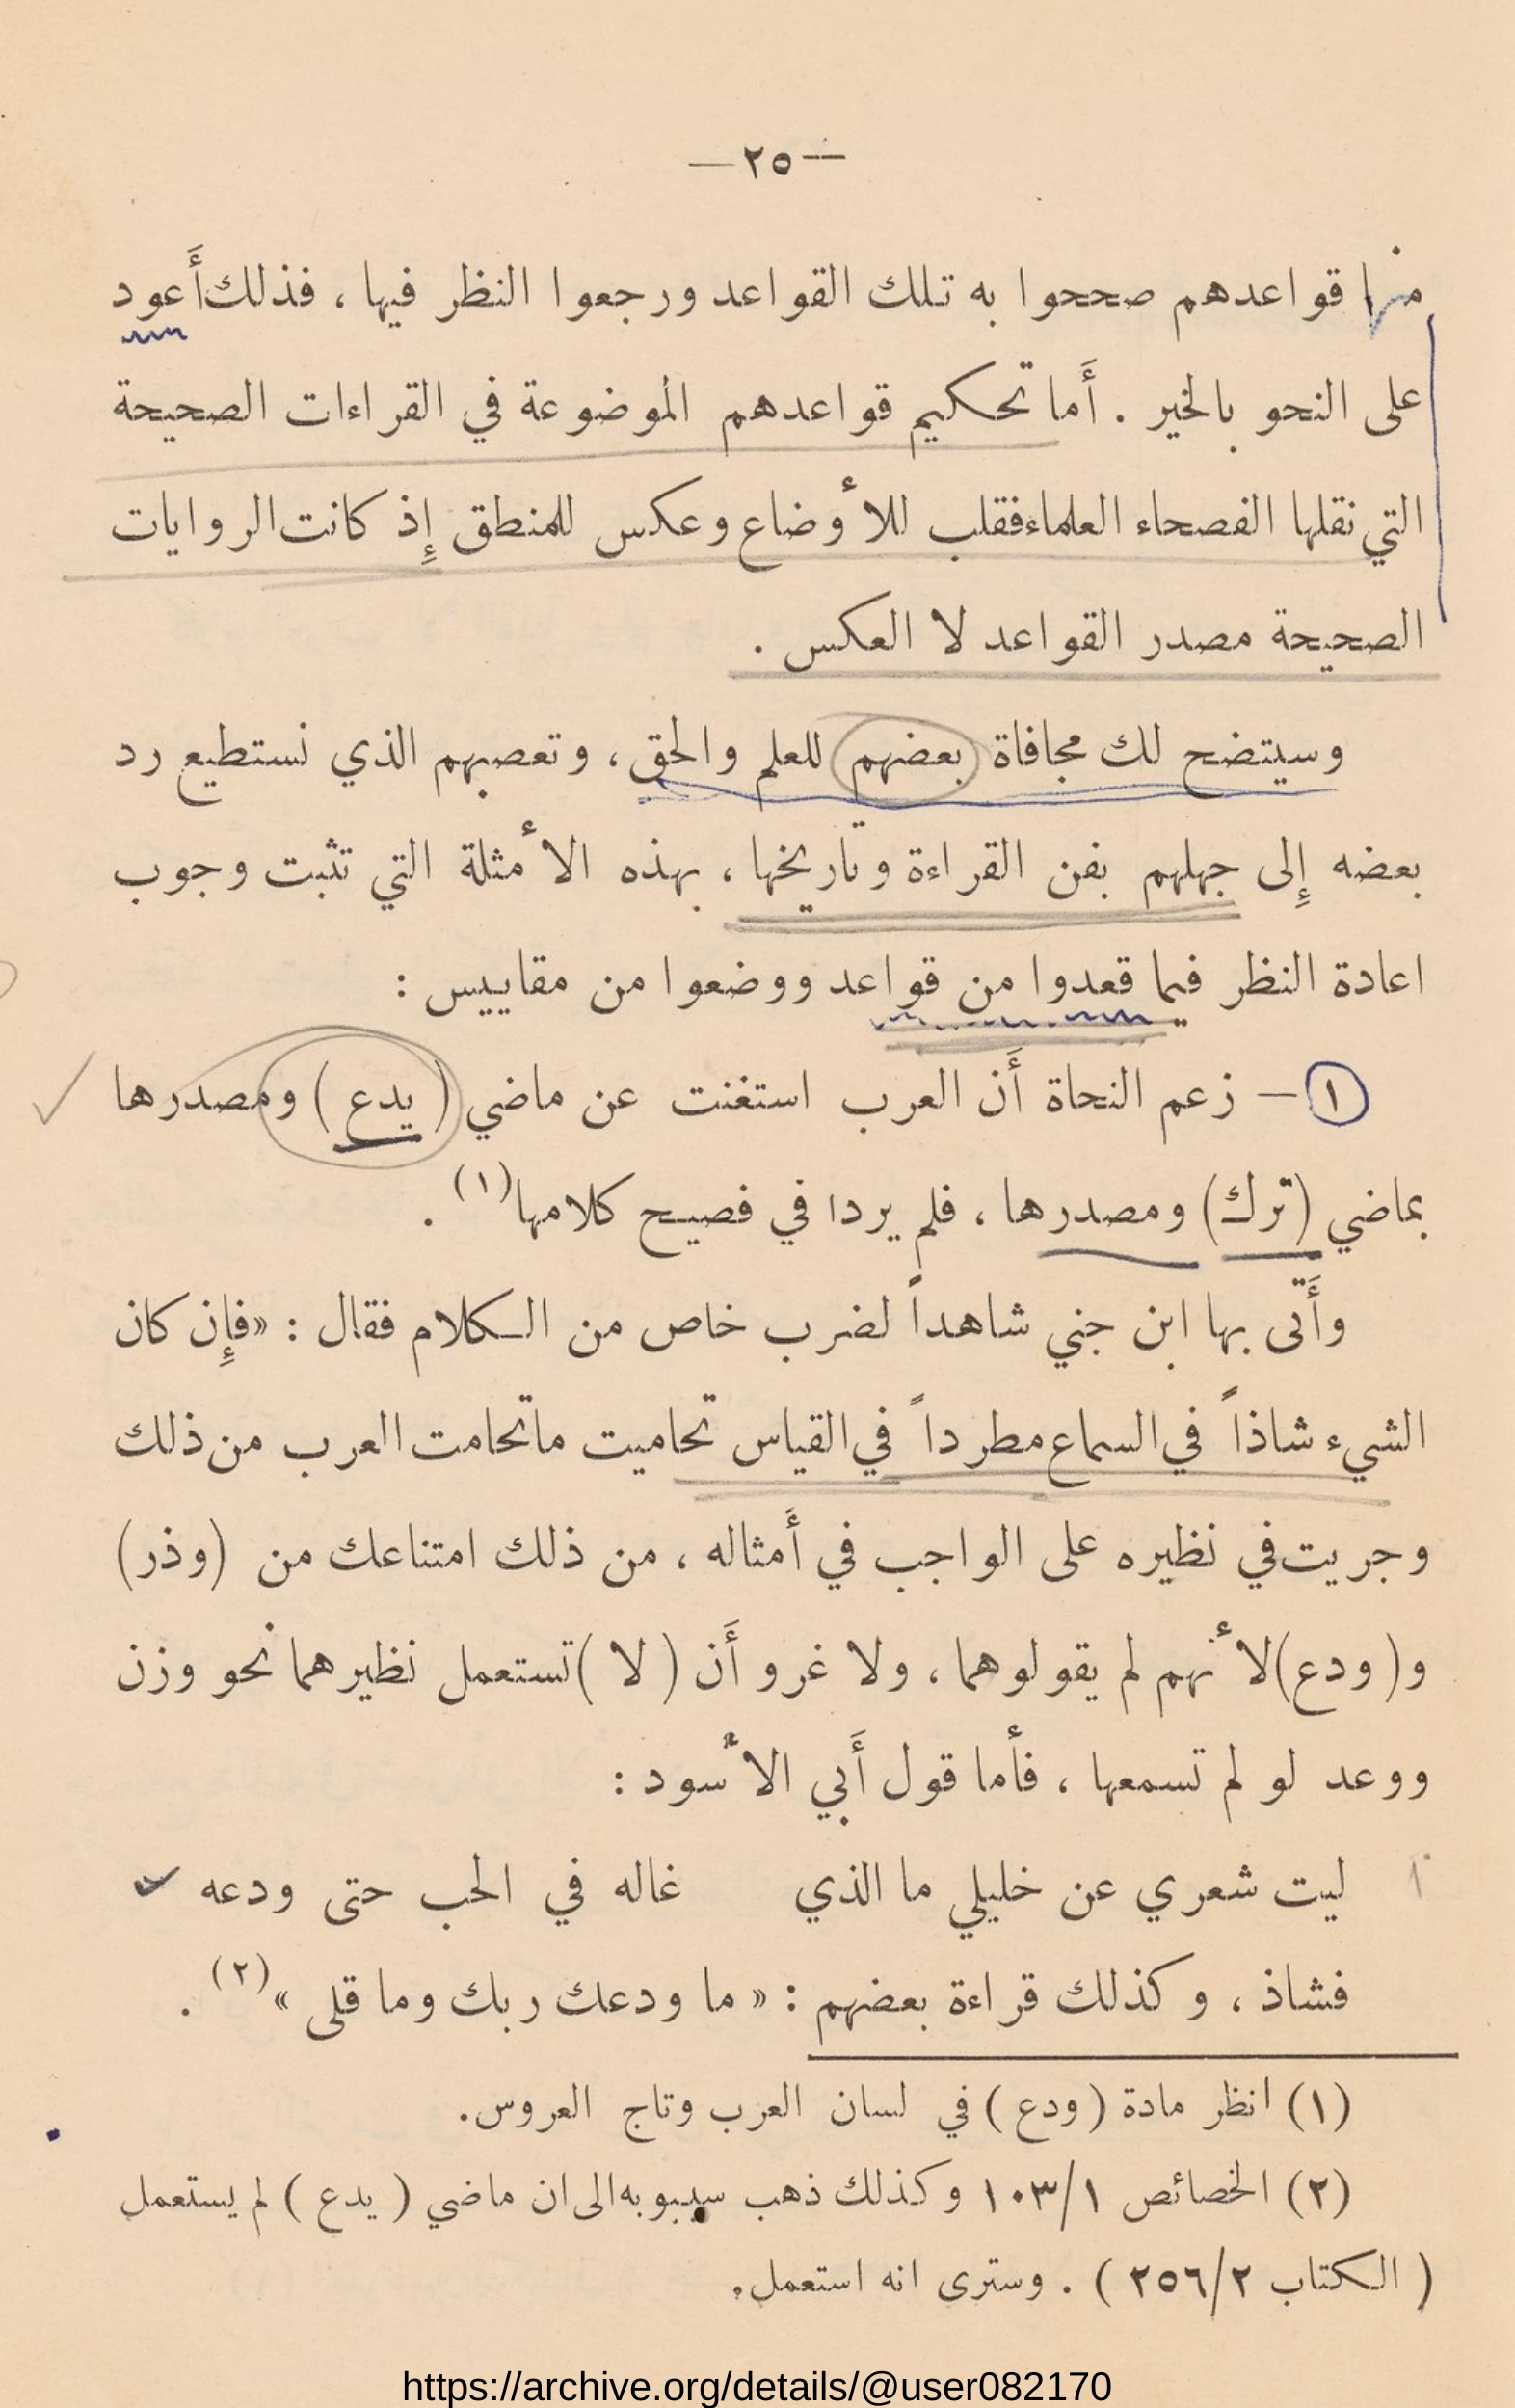 — ٢٥ —
منها قواعدهم صححوا به تلك القواعد ورجعوا النظر فيها ، فذلك أَعود
على النحو بالخير . أَما تحكيم قواعدهم الموضوعة في القراءات الصحيحة
التي نقلها الفصحاء العلماء فقلب للأوضاع وعكس للمنطق إِذ كانت الروايات
الصحيحة مصدر القواعد لا العكس .
وسيتضح لك مجافاة بعضهم للعلم والحق ، وتعصبهم الذي نستطيع رد
بعضه إِلى جهلهم بفن القراءة وتاريخها ، بهذه الأمثلة التي تثبت وجوب
اعادة النظر فيما قعدوا من قواعد ووضعوا من مقاييس :
١ – زعم النحاة أَن العرب استغنت عن ماضي ( يدع ) ومصدرها
بماضي ( ترك ) ومصدرها ، فلم يردا في فصيح كلامها (١) .
وأَتى بها ابن جني شاهداً لضرب خاص من الكلام فقال : « فإِن كان
الشيء شاذاً في السماع مطرداً في القياس تحاميت ما تحامت العرب من ذلك
وجريت في نظيره على الواجب في أَمثاله ، من ذلك امتناعك من ( وذر )
و ( ودع ) لأنهم لم يقولوهما ، ولا غرو أَن ( لا ) تستعمل نظيرهما نحو وزن
ووعد لو لم تسمعها ، فأما قول أَبي الأسود :
ليت شعري عن خليلي ما الذي غاله في الحب حتى ودعه
فشاذ ، وكذلك قراءة بعضهم : « ما ودعك ربك وما قلى » (٢) .
(١) انظر مادة ( ودع ) في لسان العرب وتاج العروس.
(٢) الخصائص ١٠٣/١ وكذلك ذهب سيبويه الى ان ماضي ( يدع ) لم يستعمل
( الكتاب ٢٥٦/٢ ) . وسترى انه استعمل.
https://archive.org/details/@user082170